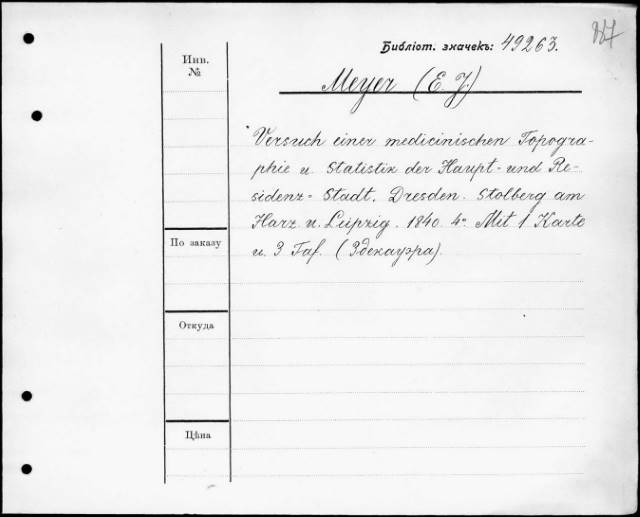 Библіот. значекъ: 49263.
Инв.
№
Meyer (E. J.)
Versuch einer medicinischen Topogra-
phie u. Statistik der Haupt- und Re-
sidenz- Stadt. Dresden. Stolberg am
Harz u. Leipzig. 1840. 4° Mit 1 Karte
u. 3 Taf. (Здекауэра).
По заказу
Откуда
Цѣна